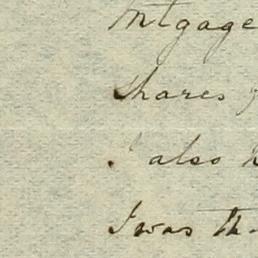 Mtgage
shares
I also
I was th